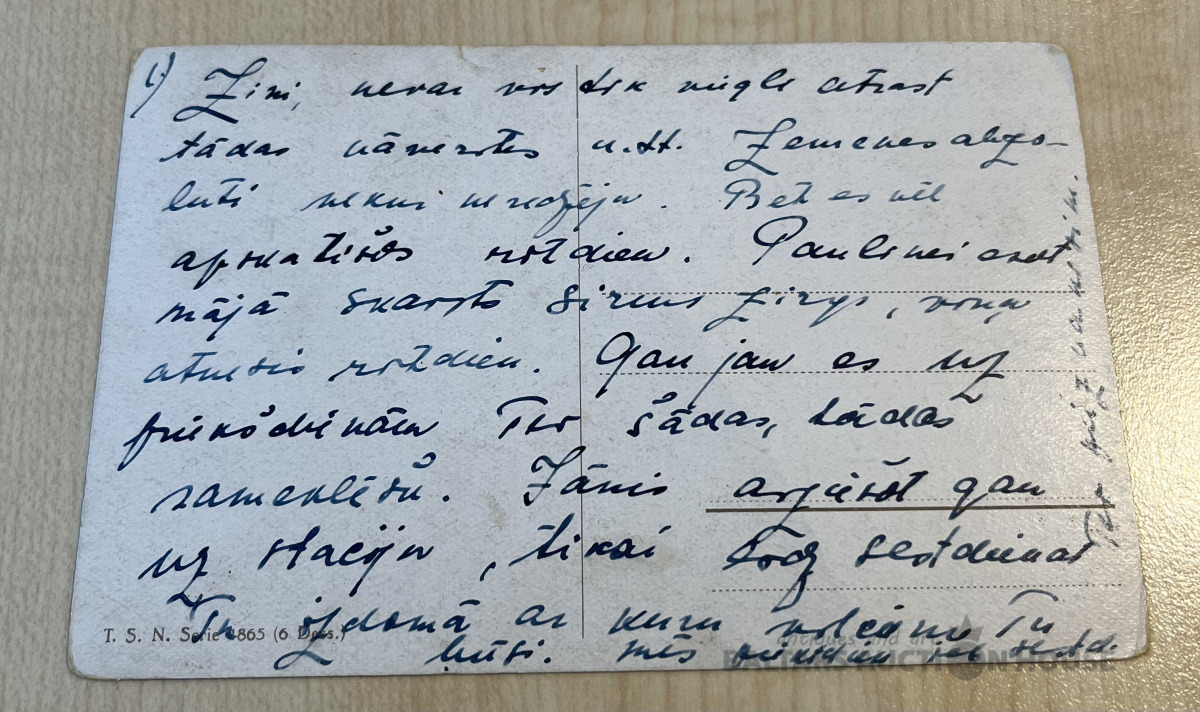 1) Zini, nevar vis tik viegli atrast
tādas u.tt. Zemenes abzo-
lūti nekur neredzēju. Bet es vēl
apskatīšos rītdien. Paulinei esot
mājā skaists sirms zirgs, viņa
atnesīs rītdien. Gan jau es uz
priekšdienām Tev šādas, tādas
sameklēšu. Jānis
gan
uz staciju, tikai sestdienai
Tu izdomā ar kuru vilcienu Tu
būsi. mēs sestd.
Tev
T. S. N. Serie 1865 (6 Dess.)